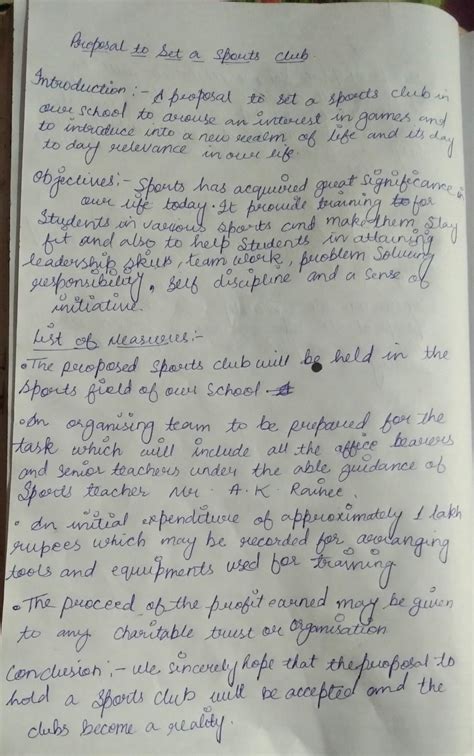 Proposal to Set a Sports Club.
Introduction :- A proposal to set a sports club in
our school to arouse an interest in games and
to introduce into a new realm of life and its day
to day relevance in our life.
Objectives:- Sports has acquired great significance in
our life today. It provide training to for
Students in various sports and make them stay
fit and also to help Students in attaining
leadership skills, team work, problem Solving
responsibility, self discipline and a sense of
initiative.
List of Measures:-
• The proposed sports club will be held in the
sports field of our School.
• An organising team to be prepared for the
task which will include all the office bearers
and senior teachers under the able guidance of
Sports teacher Mr. A. K.
• An initial expenditure of approximately 1 lakh
rupees which may be recorded for arranging
tools and equipments used for training
• The proceed of the profit earned may be given
to any charitable trust or organisation
Conclusion :- We sincerely hope that the proposal to
hold a Sports club will be accepted and the
clubs become a reality.